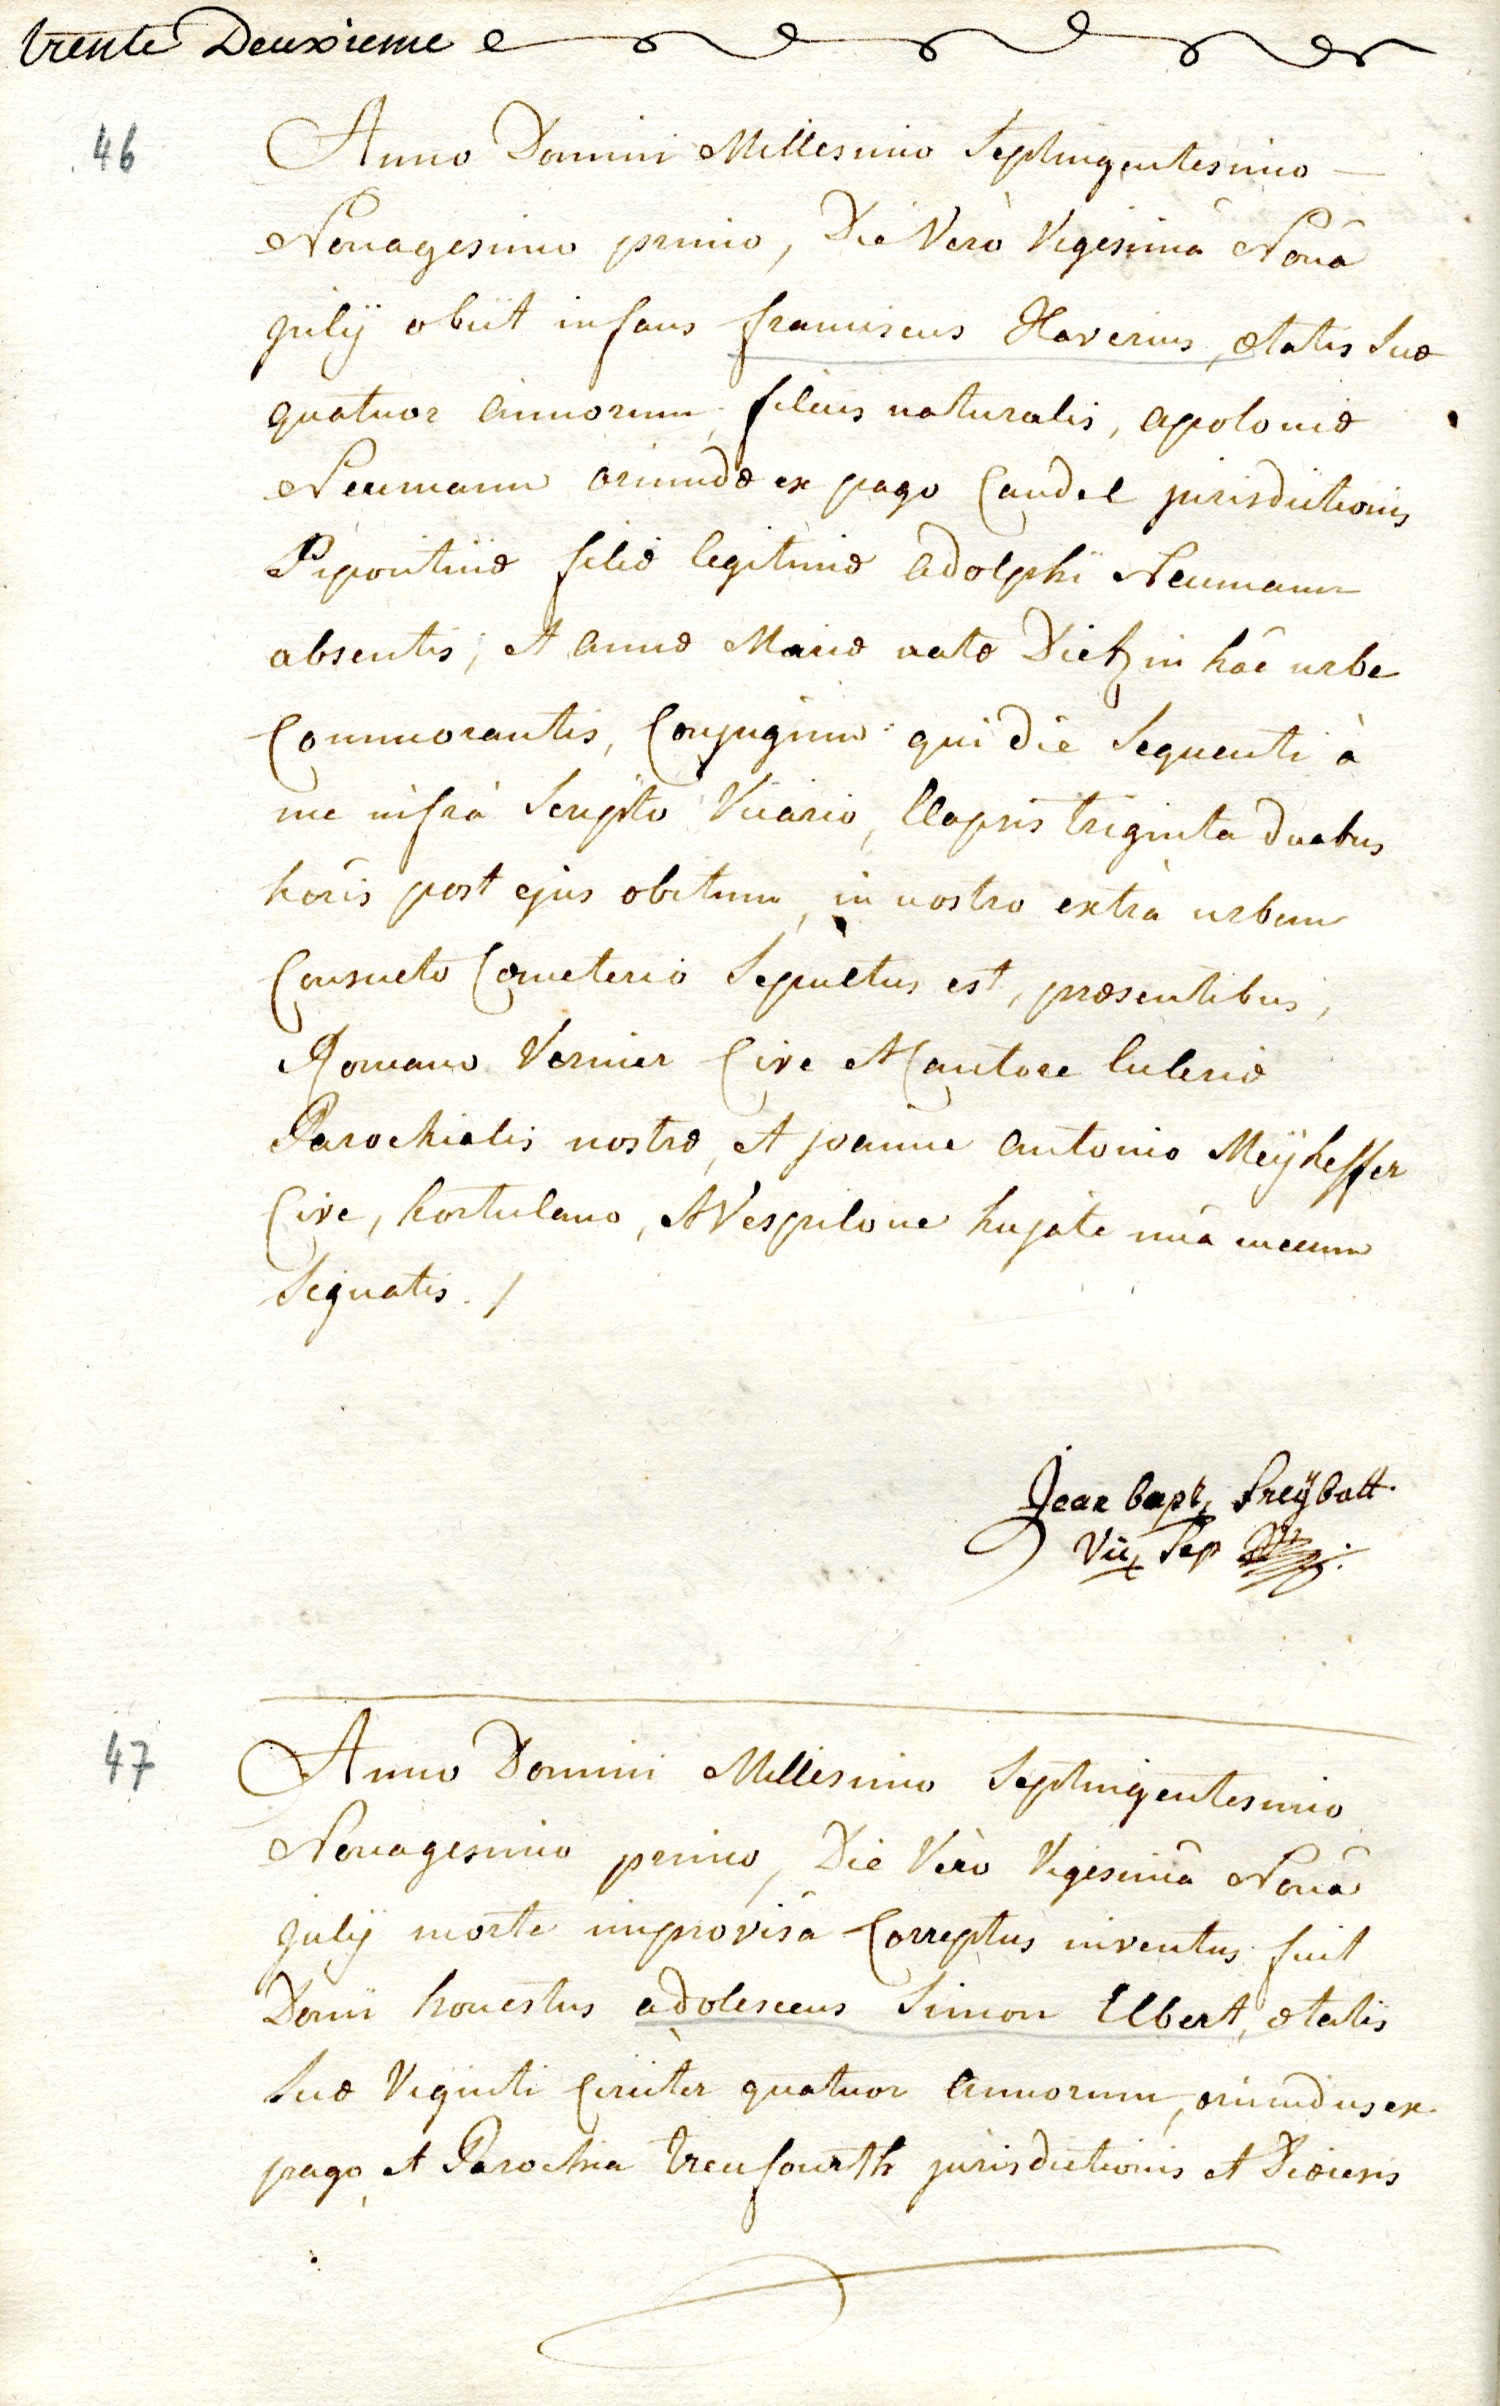 trente Deuxieme
46
Anno Domini Millesimo Septingentesimo
Nonagesimo primo, Die Verò Vigesimâ Nonâ
julÿ obiit infans franciscus Xaverius, ætatis Suæ
quatuor annorum, filius naturalis, apoloniæ
Neumann oriundæ ex pago Candel jurisdictionis
Bipontinæ filiæ legitimæ adolphi Neumann
absentis, et annæ Mariæ natæ Dietz in hâc urbe
Commorantis, Conjugum: qui die Sequenti à
me infrà Scripto Vicario, Elapsis triginta duabus
horis post ejus obitum, in nostro extrà urbem
Consueto Cœmeterio Sepultus est, præsentibus,
Romano Vernier Cive et Cantore Ecclesiæ
Parochialis nostræ, et joanne antonio Meÿheffer
Cive, hortulano, et Vespilone hujate unà mecum
Signatis. /
Jean bapt. Freÿbott
Vic.
47
Anno Domini Millesimo Septingentesimo
Nonagesimo primo, Die Verò Vigesimâ Nonâ
julÿ morte improvisâ Correptus inventus fuit
Domi honestus adolescens Simon Elbert, ætatis
Suæ Viginti Circiter quatuor annorum, oriundus ex
pago et Parochia treufourth jurisdictionis et Diœcesis